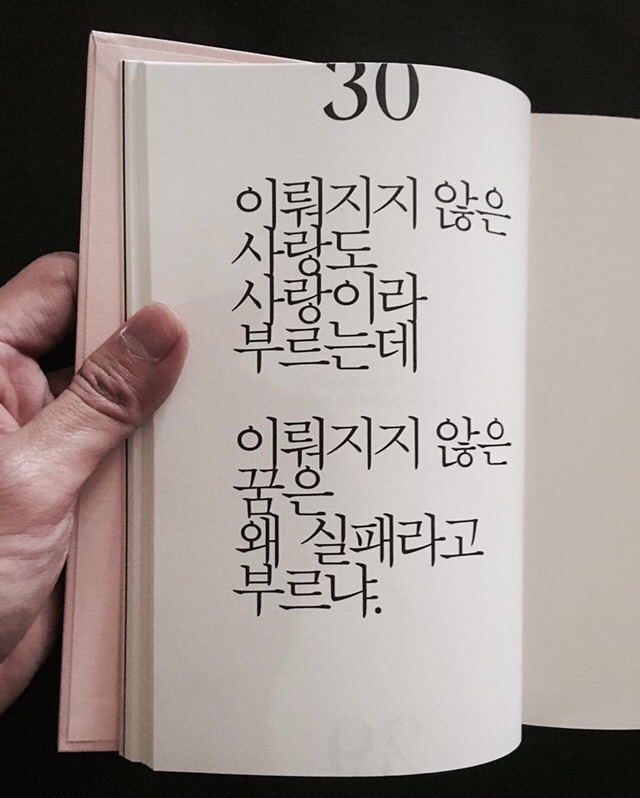 30
이뤄지지 않은
사랑도
사랑이라
부르는데
이뤄지지 않은
꿈은
왜 실패라고
부르냐.